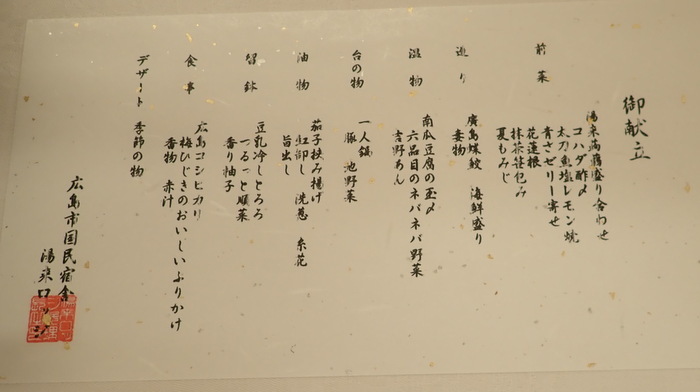 御献立
前菜
湯来蒟蒻盛り合わせ
コハダ酢〆
太刀魚塩レモン焼
青さゼリー寄せ
花蓮根
抹茶笹包み
夏もみじ
造り
廣島蝶鮫 海鮮盛り
妻物
温物
南瓜豆腐の玉〆
六品目のネバネバ野菜
吉野あん
台の物
一人鍋
豚 地野菜
油物
茄子挟み揚げ
紅卸し 洗葱 糸花
旨出し
留鉢
豆乳冷しとろろ
つるっと順菜
香り柚子
食事
広島コシヒカリ
梅ひじきのおいしいふりかけ
香物 赤汁
デザート
季節の物
広島市国民宿舎
湯来ロッジ